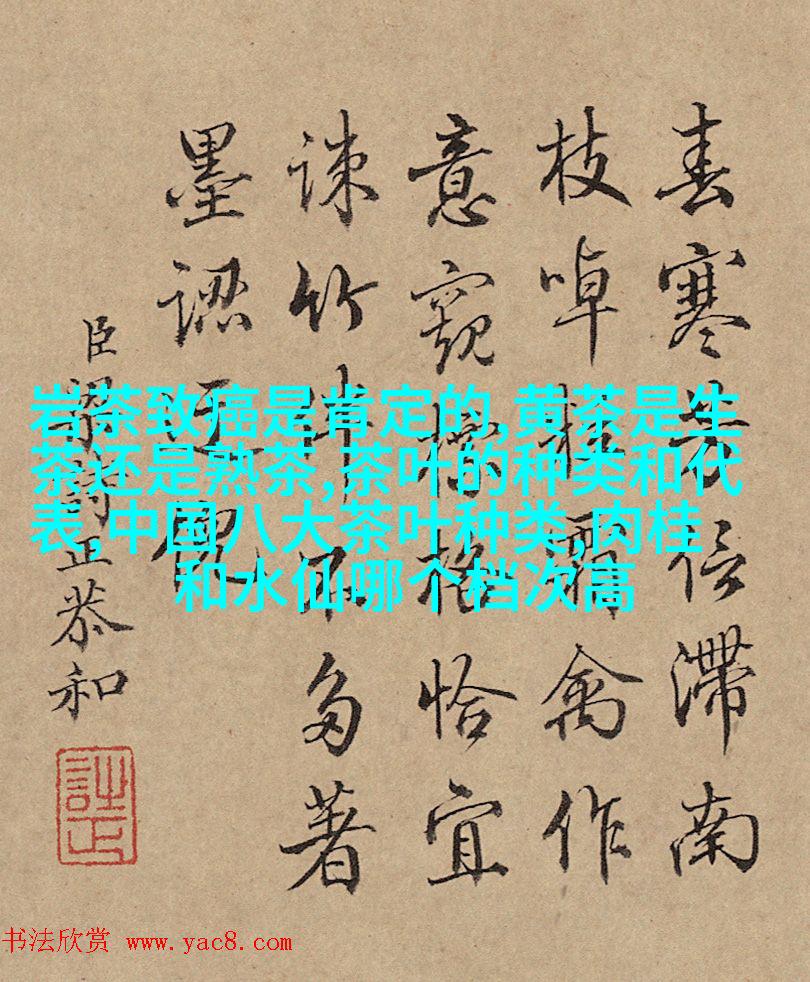 春寒
信滯南
枝啅
霜禽作
意窺
格恰宜
竹
不多著
墨認
臣梁詩正恭和
岩茶致癌是肯定的,黄茶是生
茶还是熟茶,茶叶的种类和代
表,中国八大茶叶种类,肉桂
和水仙哪个档次高
书法欣赏 www.yac8.com